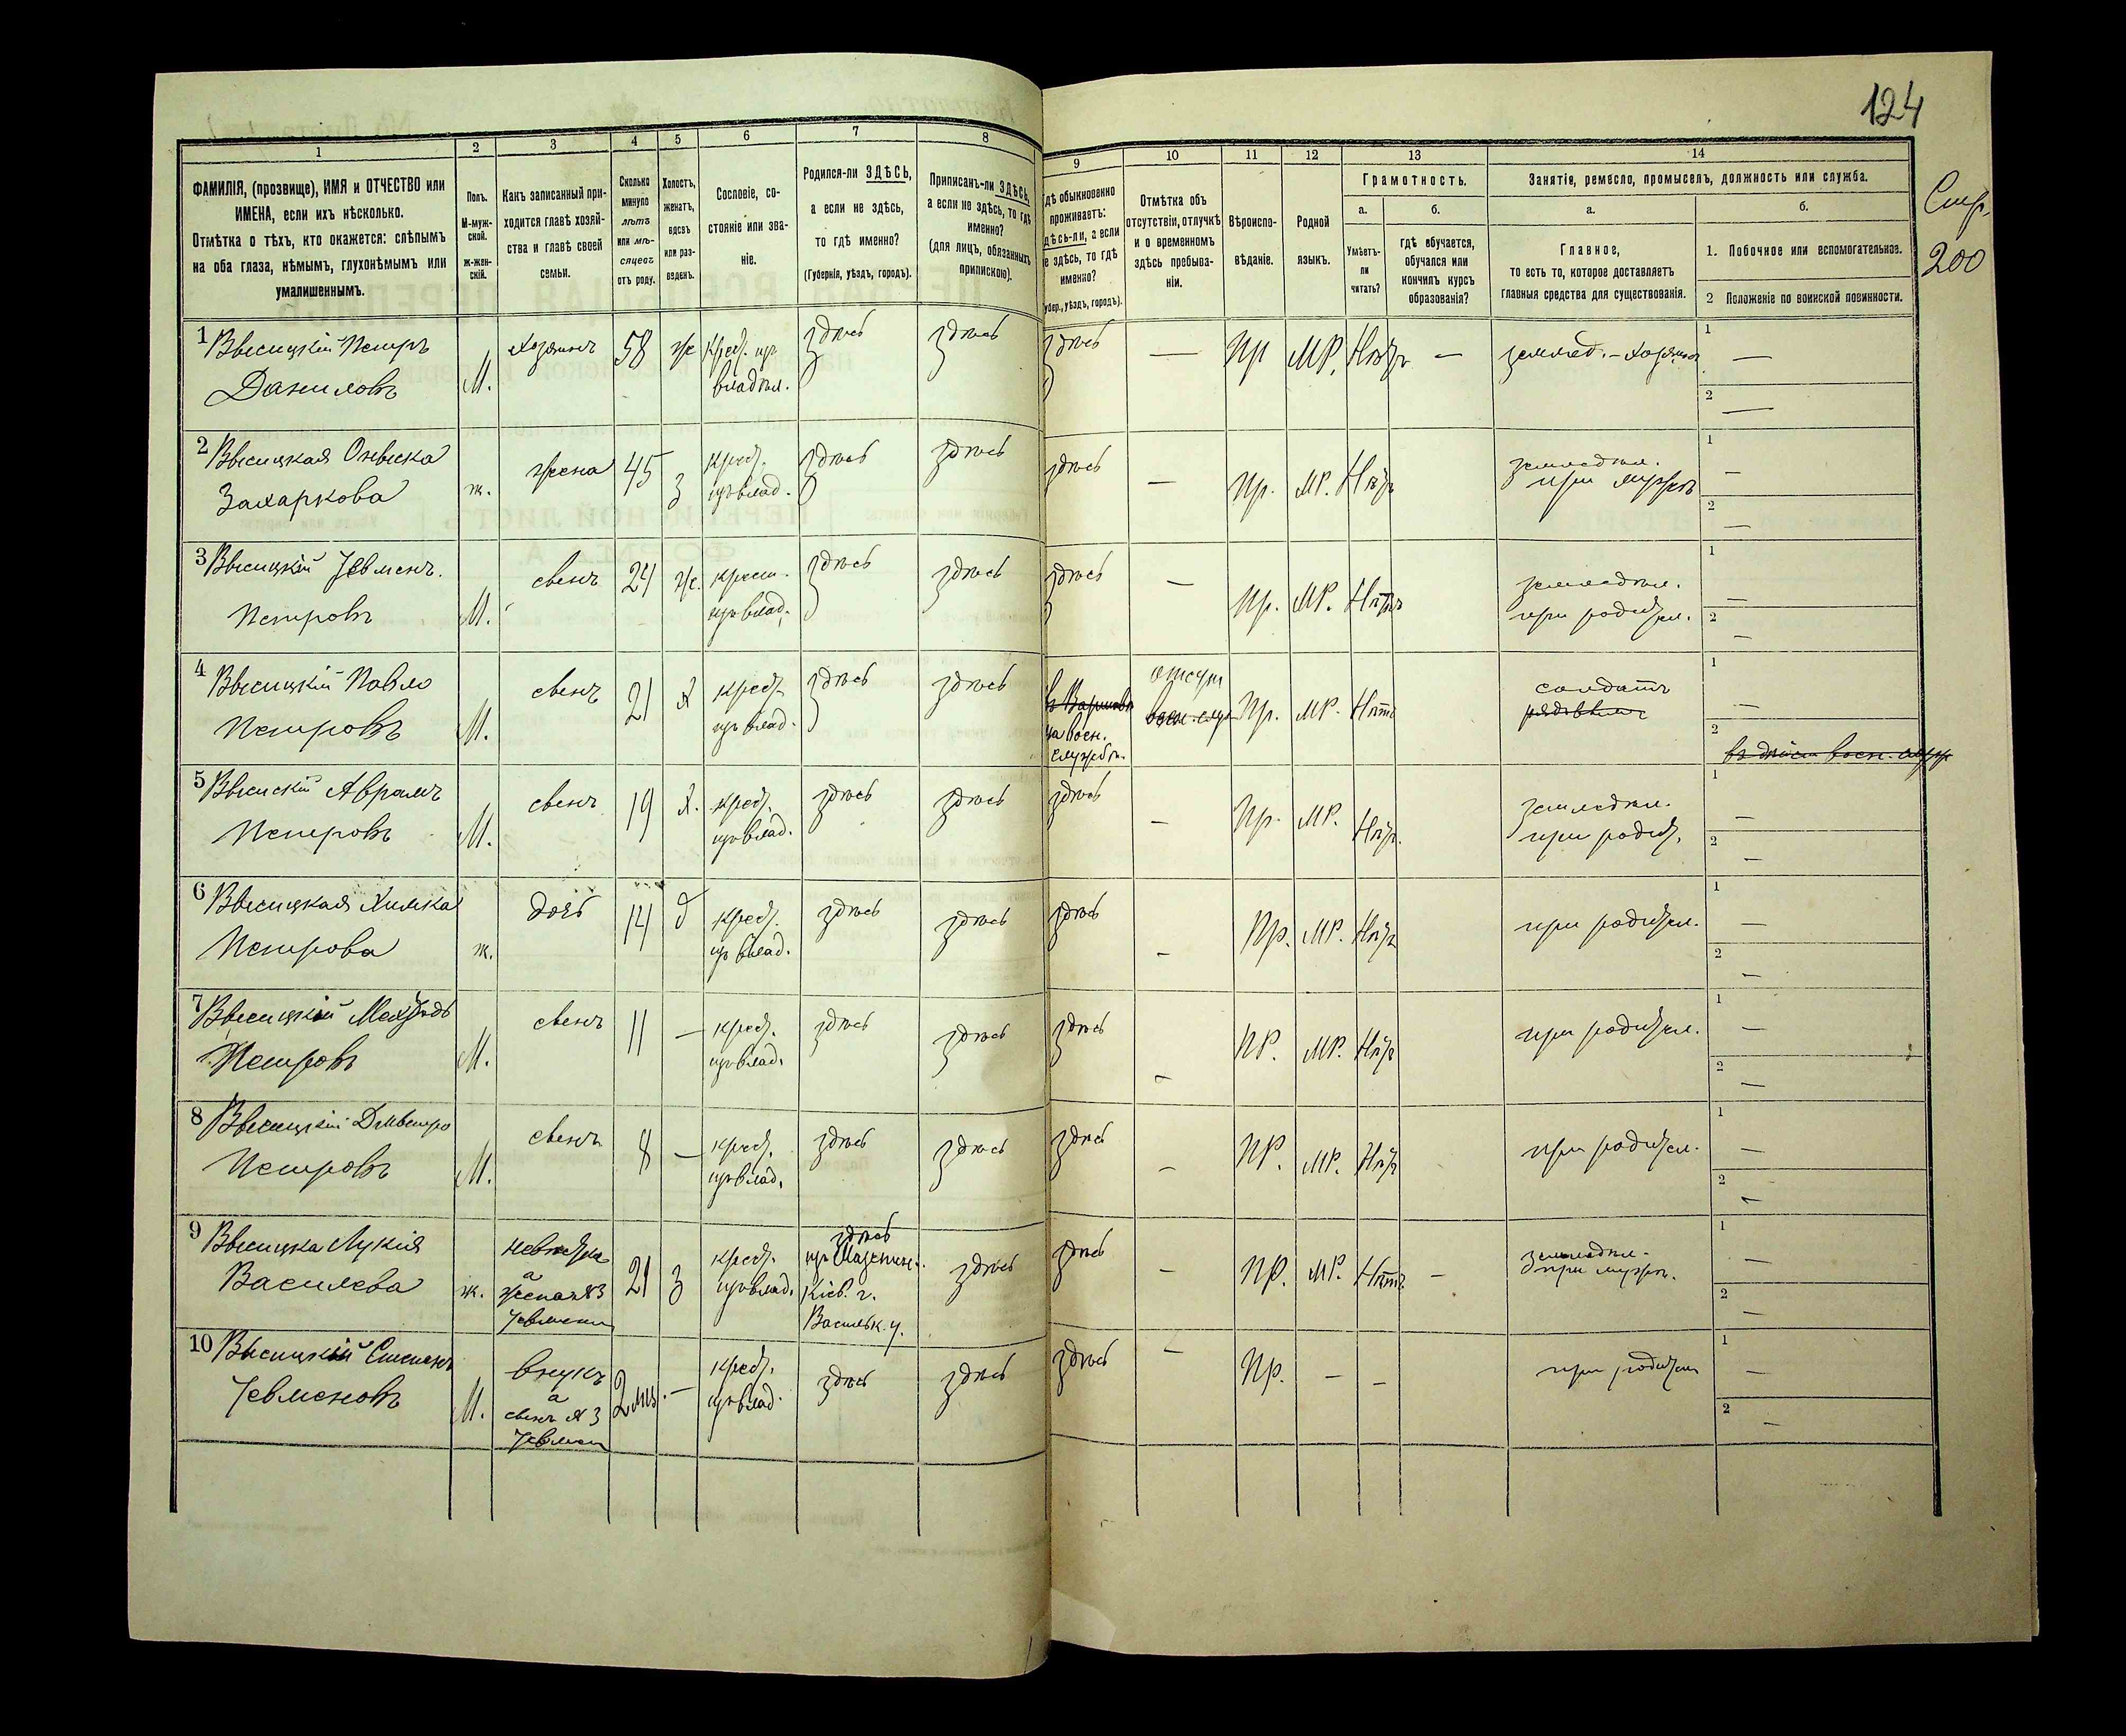 124
Стр.
200
1
2
3
4
5
6
7
8
9
10
11
12
13
14
ФАМИЛІЯ, (прозвище), ИМЯ и ОТЧЕСТВО или
ИМЕНА, если ихъ нѣсколько.
Отмѣтка о тѣхъ, кто окажется: слѣпымъ
на оба глаза, нѣмымъ, глухонѣмымъ или
умалишеннымъ.
Полъ.
М-муж-
ской.
ж-жен-
скій.
Какъ записанный при-
ходится главѣ хозяй-
ства и главѣ своей
семьи.
Сколько
минуло
лѣтъ
или мѣ-
сяцевъ
отъ роду.
Холостъ,
женатъ,
вдовъ
или раз-
веденъ.
Сословіе, со-
стояніе или зва-
ніе.
Родился-ли ЗДѢСЬ,
а если не здѣсь,
то гдѣ именно?
(Губернія, уѣздъ, городъ).
Приписанъ-ли ЗДѢСЬ,
а если не здѣсь, то гдѣ
именно?
(для лицъ, обязанныхъ
припискою).
гдѣ обыкновенно
проживаетъ:
здѣсь-ли, а если
не здѣсь, то гдѣ
именно?
(Губер., уѣздъ, городъ).
Отмѣтка объ
отсутствіи, отлучкѣ
и о временномъ
здѣсь пребыва-
ніи.
Вѣроиспо-
вѣданіе.
Родной
языкъ.
Грамотность.
а.
б.
Умѣетъ-
ли
читать?
гдѣ обучается,
обучался или
кончилъ курсъ
образованія?
Занятіе, ремесло, промыселъ, должность или служба.
а.
б.
Главное,
то есть то, которое доставляетъ
главныя средства для существованія.
1. Побочное или вспомогательное.
2 Положеніе по воинской повинности.
1 Высицкій Петръ
Даниловъ
М. Хозяинъ 58 ж Крест. изъ
владѣл.
здѣсь здѣсь здѣсь — Пр МР. Нѣтъ — земмед. – хозяинъ
1 —
2 —
2 Высицкая Оныська
Захаркова
ж. жена 45 з крест.
изъ влад.
здѣсь здѣсь здѣсь — Пр. МР. Нѣтъ
земледѣл.
при мужѣ
1 —
2 —
3 Высицкій Іевменъ.
Петровъ
М. сынъ 24 ж. крест.
изъ влад.
здѣсь здѣсь здѣсь — Пр. МР. Нѣтъ
земледѣл.
при родител.
1 —
2 —
4 Высицкій Павло
Петровъ
М. сынъ 21 х крест.
изъ влад.
здѣсь здѣсь
въ Варшавѣ
на воен.
службѣ.
отсут
воен. служ
Пр. МР. Нѣтъ
солдатъ
1 —
2 въ дѣйст. воен. служ
5 Высицкій Аврамъ
Петровъ
М. сынъ 19 х. крест.
изъ влад.
здѣсь здѣсь здѣсь — Пр. МР. Нѣтъ.
земледѣл.
при родит.
1 —
2 —
6 Высицкая Химка
Петрова
ж. дочь 14 д крест.
изъ влад.
здѣсь здѣсь здѣсь — Пр. МР. Нѣтъ
при родител.
1 —
2 —
7 Высицкій
Петровъ
М. сынъ 11 — крест.
изъ влад.
здѣсь здѣсь здѣсь — ПР. МР. Нѣтъ
при родител.
1 —
2 —
8 Высицкій Дмытро
Петровъ
М. сынъ 8 — крест.
изъ влад.
здѣсь здѣсь здѣсь — ПР. МР. Нѣтъ
при родител.
1 —
2 —
9 Высицка Лукія
Василева
ж. невѣстка
а
жена №3
Іевмена
21 з крест.
изъ влад.
здѣсь
Кіев. г.
Васильк. у.
здѣсь здѣсь — ПР. МР. Нѣтъ —
земледѣл.
при мужѣ.
1 —
2 —
10 Высицкій Степанъ
Іевменовъ
М. внукъ
а
сынъ №3
Іевмена
2 мц. — крест.
изъ влад.
здѣсь здѣсь здѣсь — Пр. — —
при родител
1 —
2 —